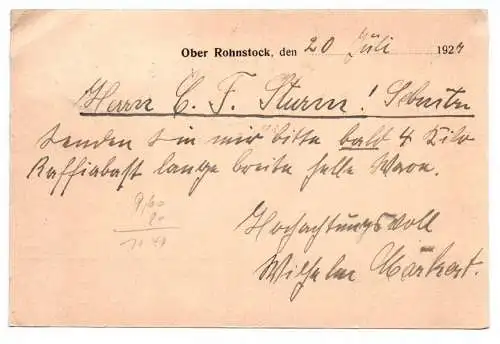 Ober Rohnstock, den 20 Juli 1924
Herrn C. F. Sturm! Sebnitz
Senden Sie mir bitte bald 4 Kilo
Raffiabast lange breite helle Ware.
9,60
Hochachtungsvoll
Wilhelm Märkert.